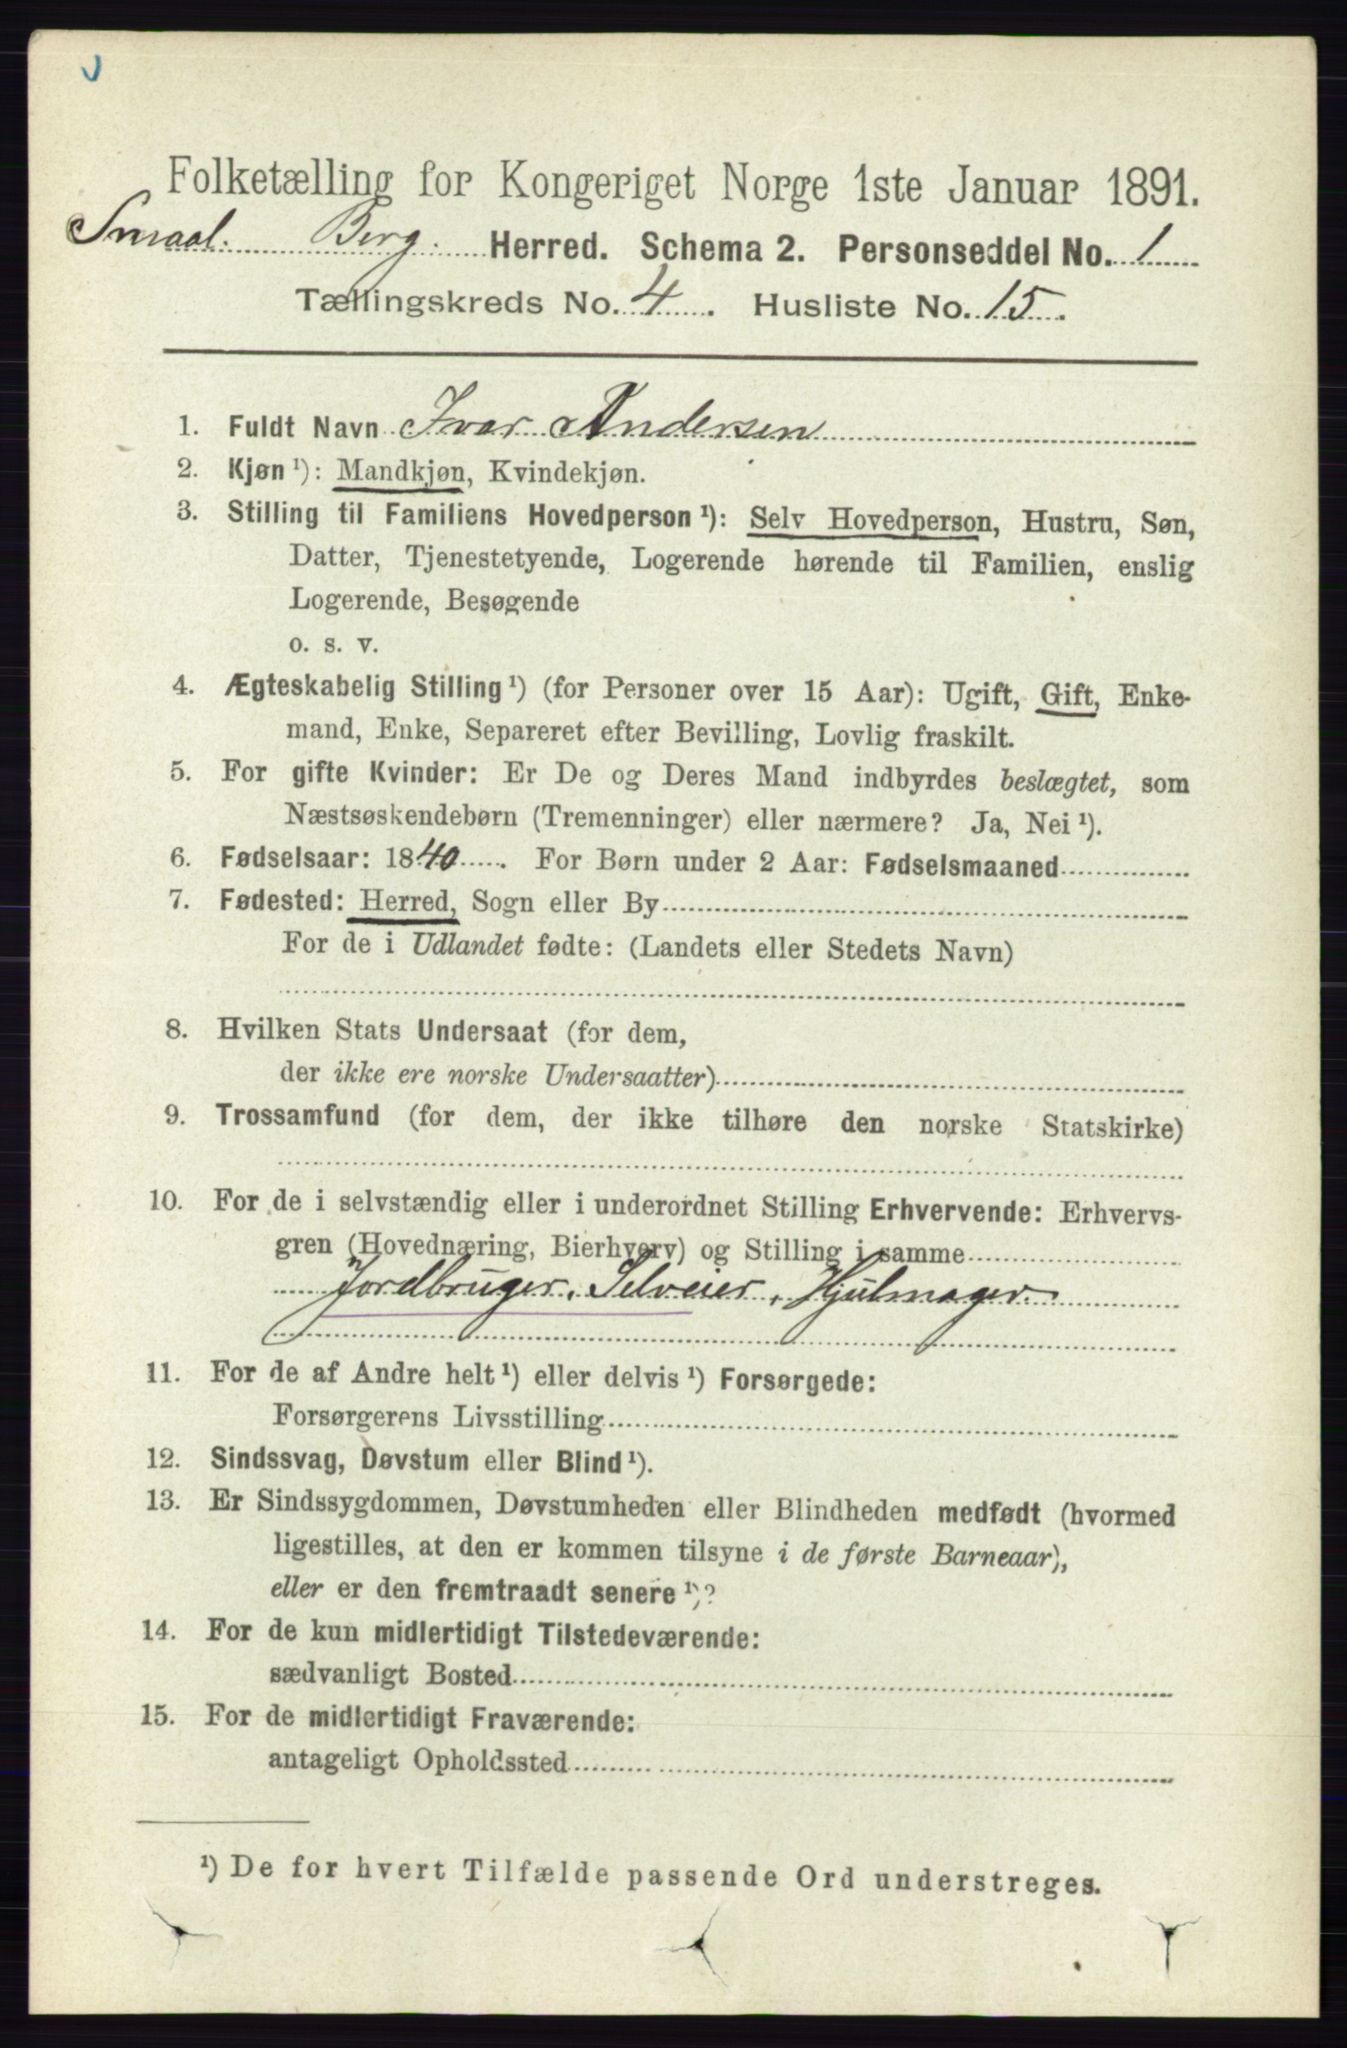 Folketælling for Kongeriget Norge 1ste Januar 1891.
Smaal. Berg. Herred. Schema 2. Personseddel No. 1
Tællingskreds No. 4. Husliste No. 15.
1. Fuldt Navn Ivar Andersen
2. Kjøn ¹): Mandkjøn, Kvindekjøn.
3. Stilling til Familiens Hovedperson ¹): Selv Hovedperson, Hustru, Søn,
Datter, Tjenestetyende, Logerende hørende til Familien, enslig
Logerende, Besøgende
o. s. v.
4. Ægteskabelig Stilling ¹) (for Personer over 15 Aar): Ugift, Gift, Enke-
mand, Enke, Separeret efter Bevilling, Lovlig fraskilt.
5. For gifte Kvinder: Er De og Deres Mand indbyrdes beslægtet, som
Næstsøskendebørn (Tremenninger) eller nærmere? Ja, Nei ¹).
6. Fødselsaar: 1840. For Børn under 2 Aar: Fødselsmaaned
7. Fødested: Herred, Sogn eller By
For de i Udlandet fødte: (Landets eller Stedets Navn)
8. Hvilken Stats Undersaat (for dem,
der ikke ere norske Undersaatter)
9. Trossamfund (for dem, der ikke tilhøre den norske Statskirke)
10. For de i selvstændig eller i underordnet Stilling Erhvervende: Erhvervs-
gren (Hovednæring, Bierhverv) og Stilling i samme
Jordbruger, Selveier, Hjulmager
11. For de af Andre helt ¹) eller delvis ¹) Forsørgede:
Forsørgerens Livsstilling
12. Sindssvag, Døvstum eller Blind ¹).
13. Er Sindssygdommen, Døvstumheden eller Blindheden medfødt (hvormed
ligestilles, at den er kommen tilsyne i de første Barneaar),
eller er den fremtraadt senere ¹)?
14. For de kun midlertidigt Tilstedeværende:
sædvanligt Bosted
15. For de midlertidigt Fraværende:
antageligt Opholdssted
¹) De for hvert Tilfælde passende Ord understreges.